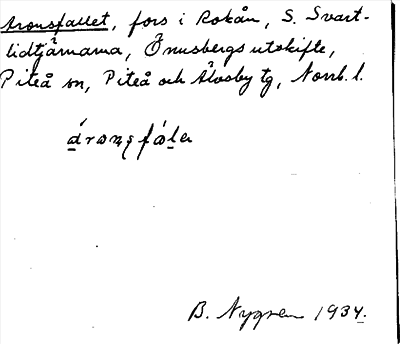 Aronsfallet, fors i Rokån, S. Svart-
lidtjärnarna, Önusbergs utskifte,
Piteå sn, Piteå och Älvsby tg, Norrb. l.
B. Nygren 1934.